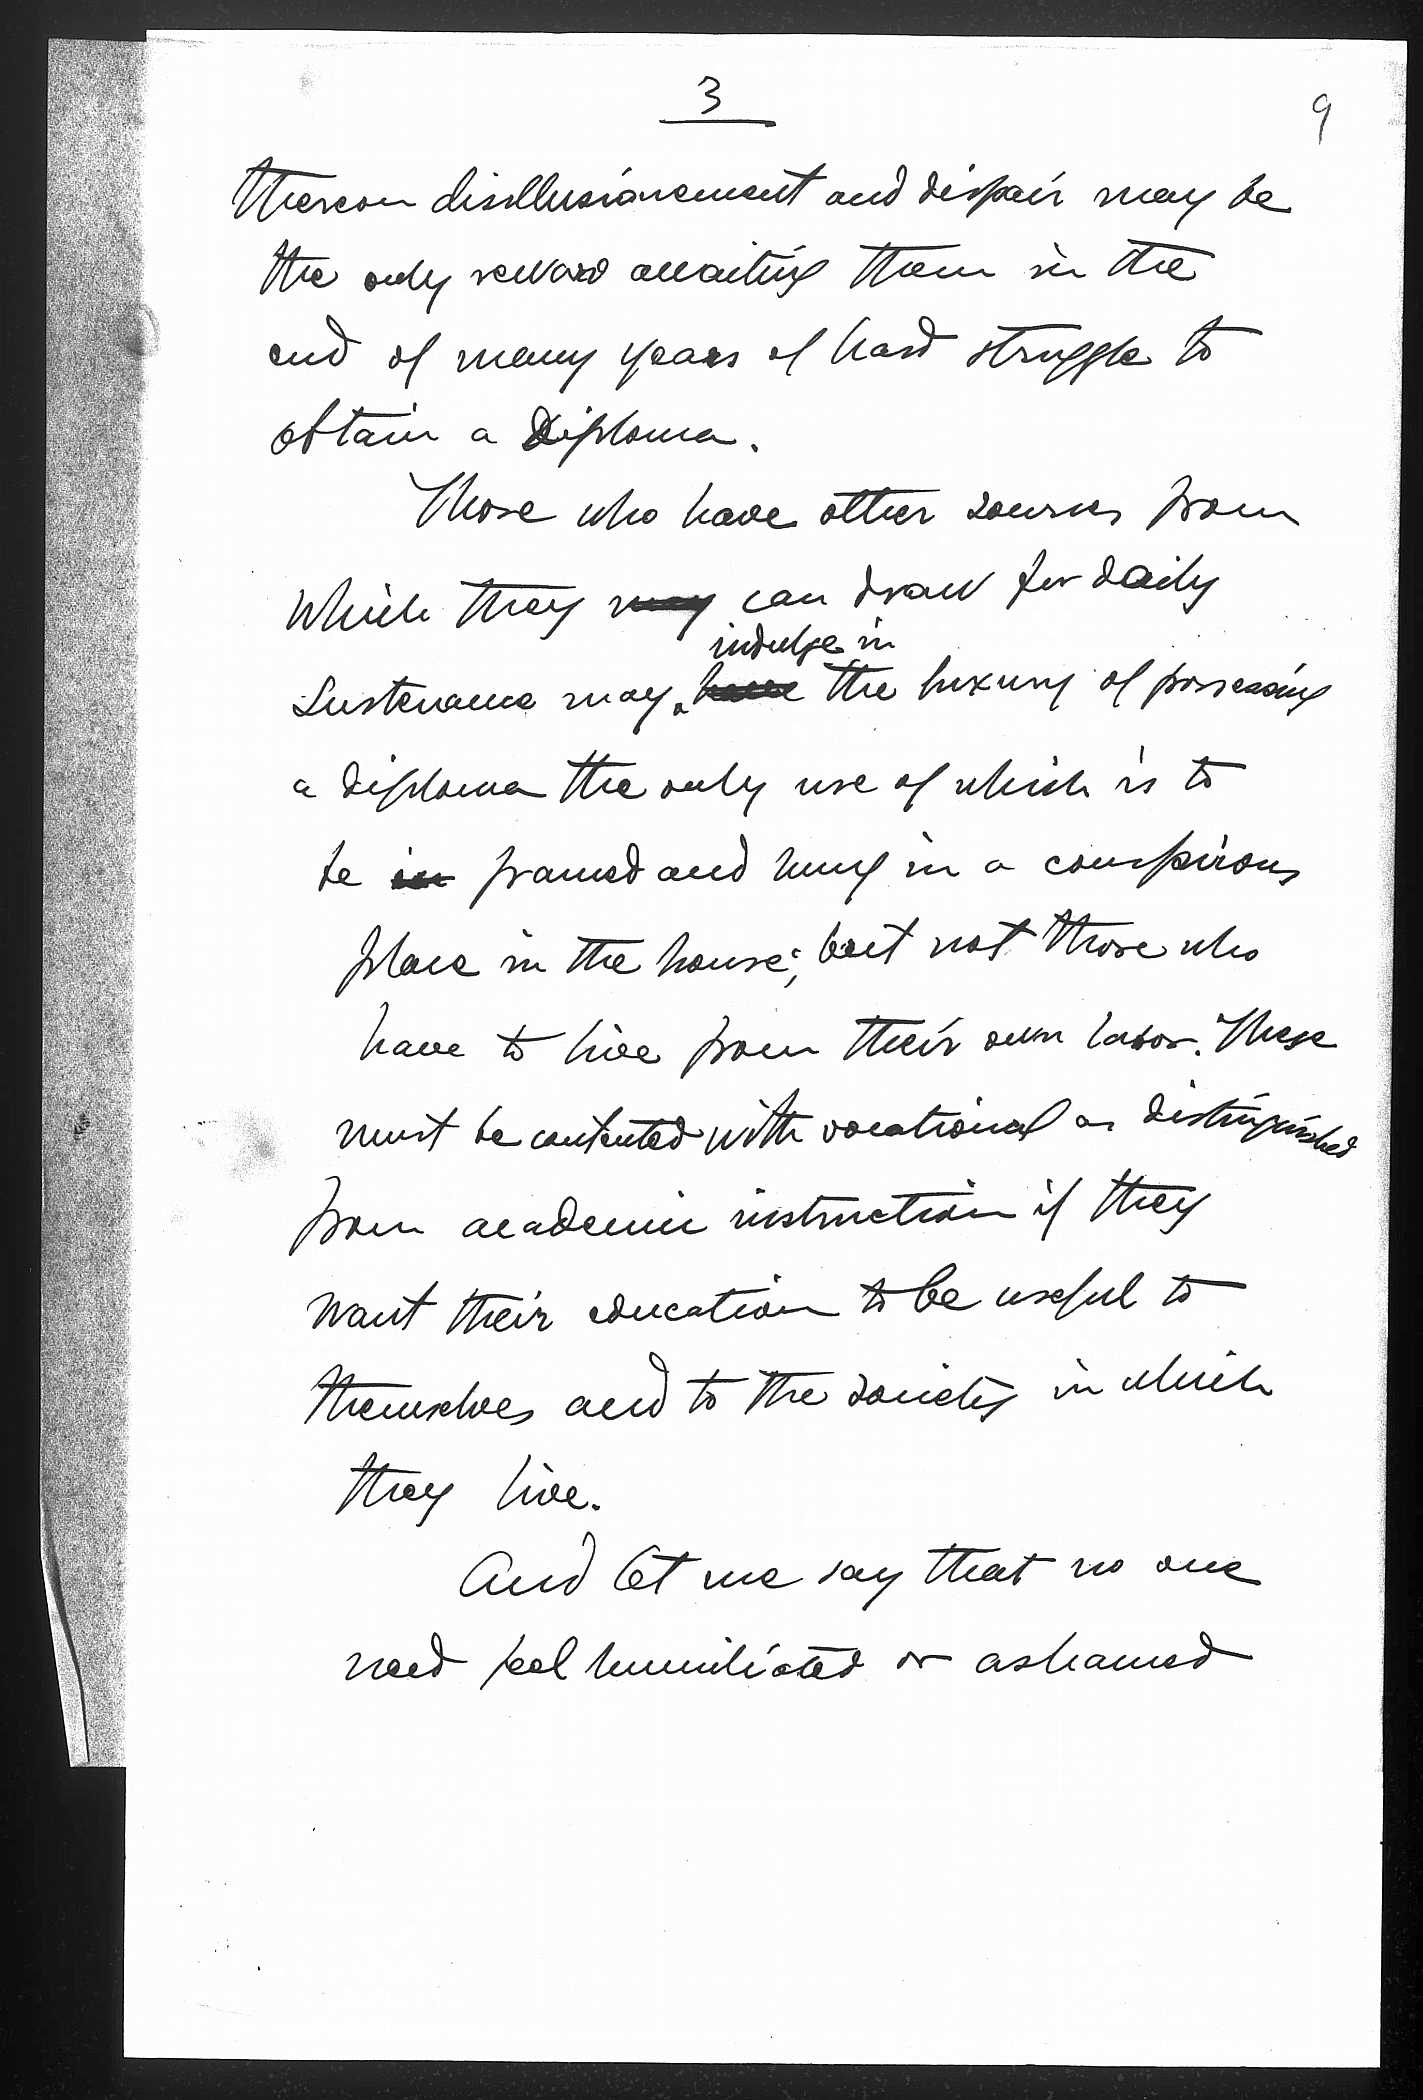 3
9
thereon disillusionement and dispair may be
the only reward awaiting them in the
end of many years of hard struggle to
obtain a Diploma.
Those who have other sources from
which they may can draw for daily
indulge in
sustenance may have the luxury of possessing
a diploma the only use of which is to
be in framed and hung in a conspirous
place in the house; but not those who
have to live from their own labor. These
must be contented with vocational as distinguished
from academic instruction if they
want their education to be useful to
themselves and to the society in which
they live.
And let me say that no one
need feel humiliated or ashamed